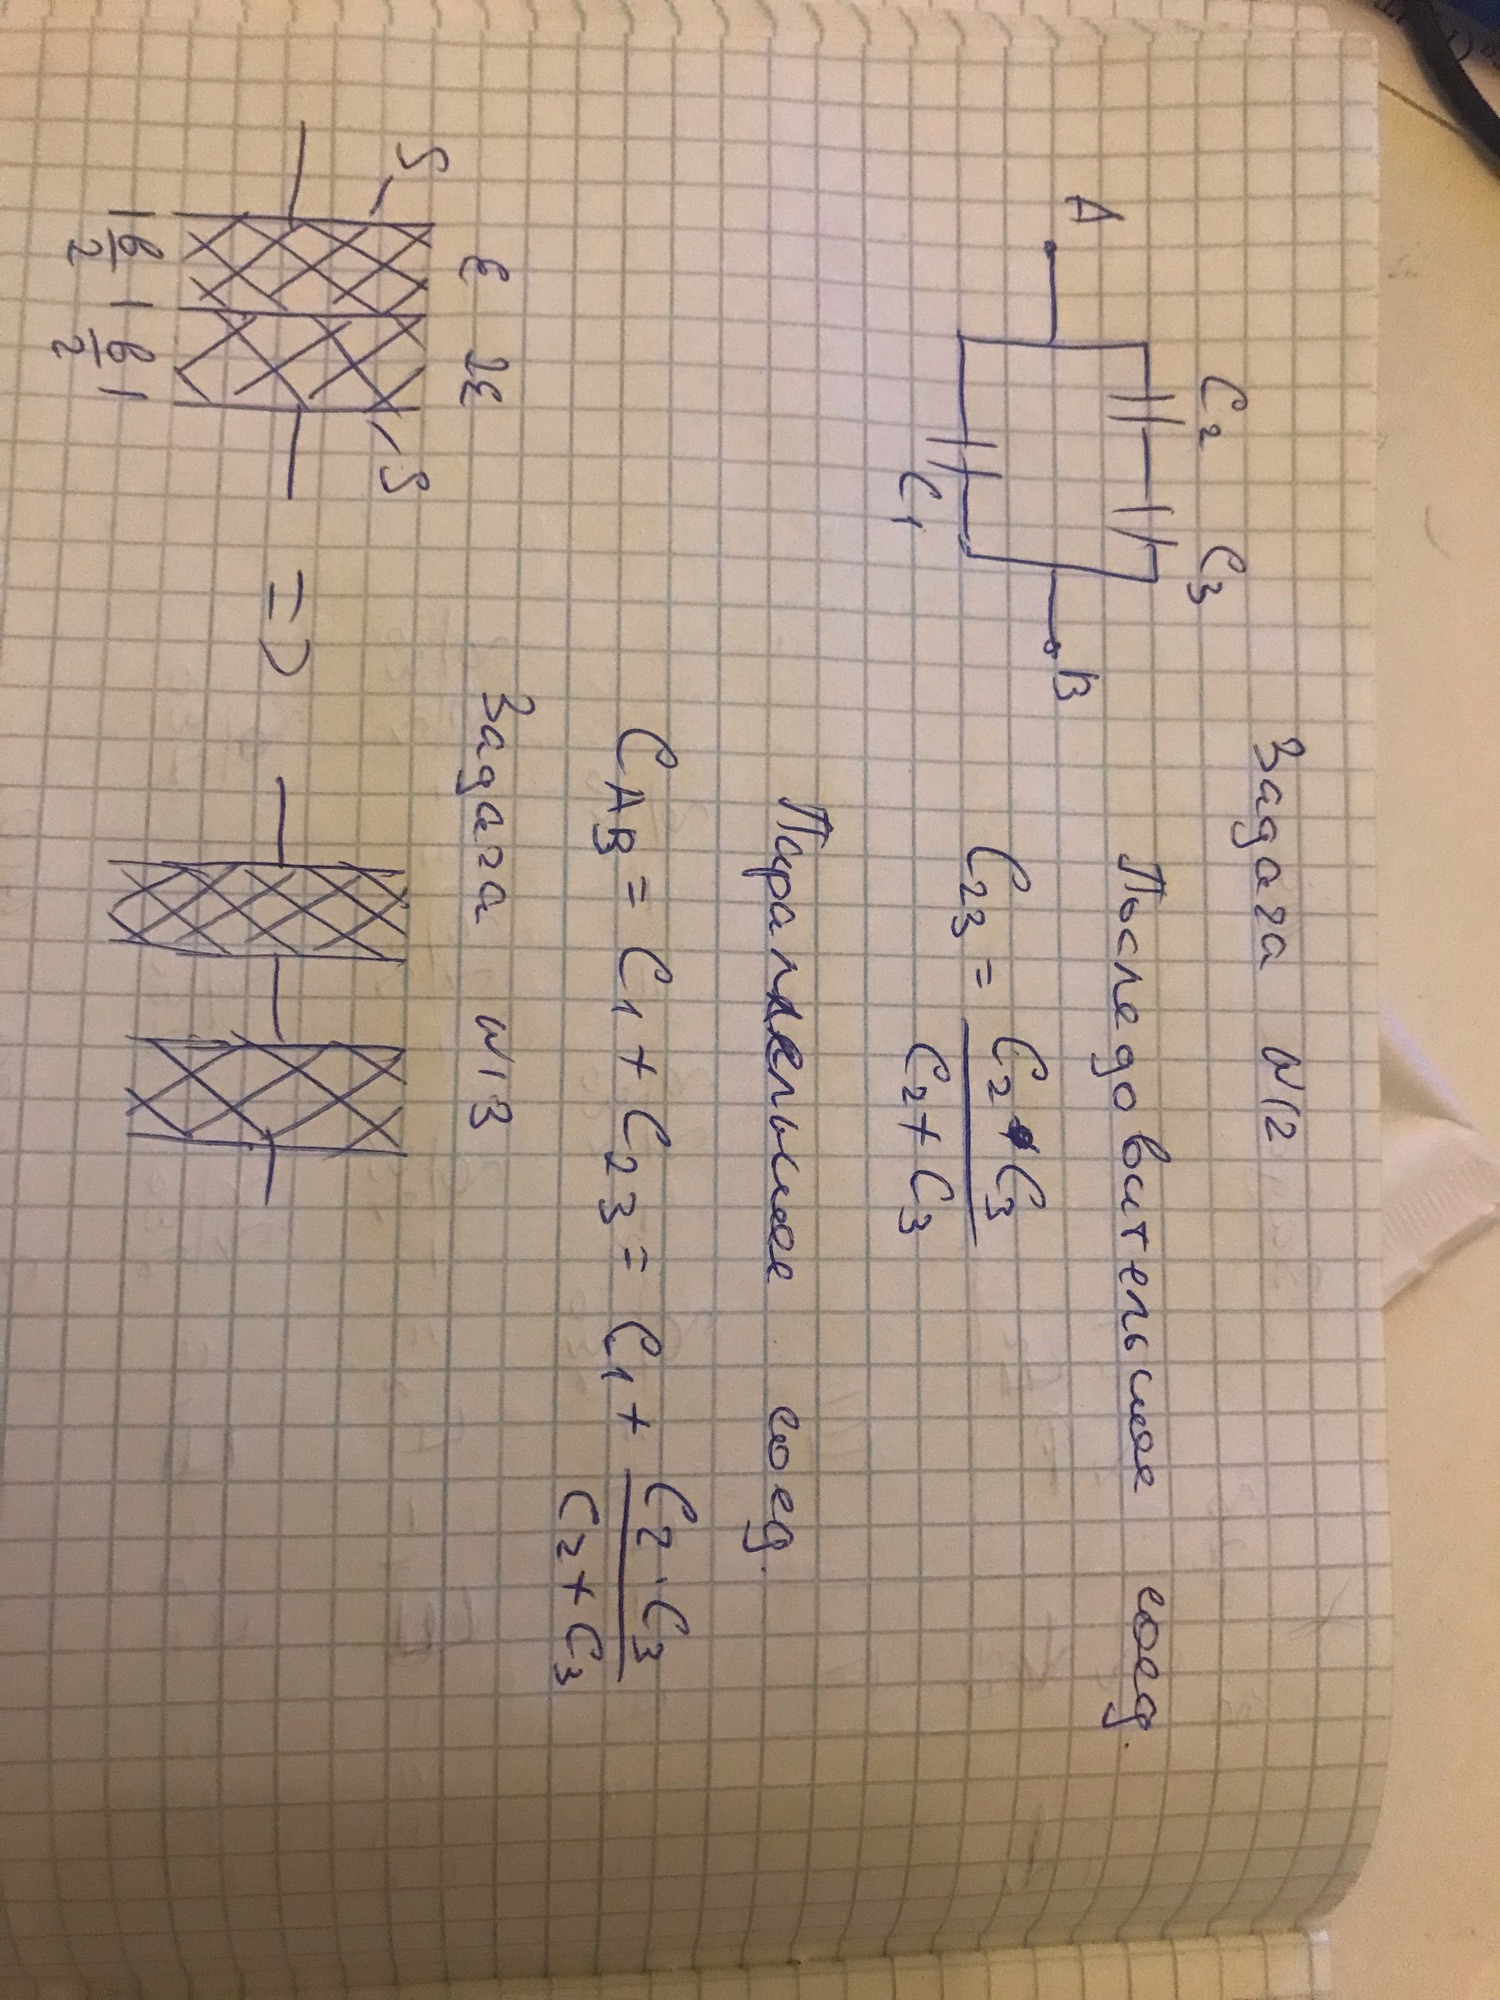 Задача №12
C₂ C₃
Последовательное соед.
A
B
C₂₃ = (C₂ · C₃)/(C₂ + C₃)
C₁
Параллельное соед.
C_AB = C₁ + C₂₃ = C₁ + (C₂ · C₃)/(C₂ + C₃)
Задача №13
ε 2ε
S S
=>
| в/2 | в/2 |